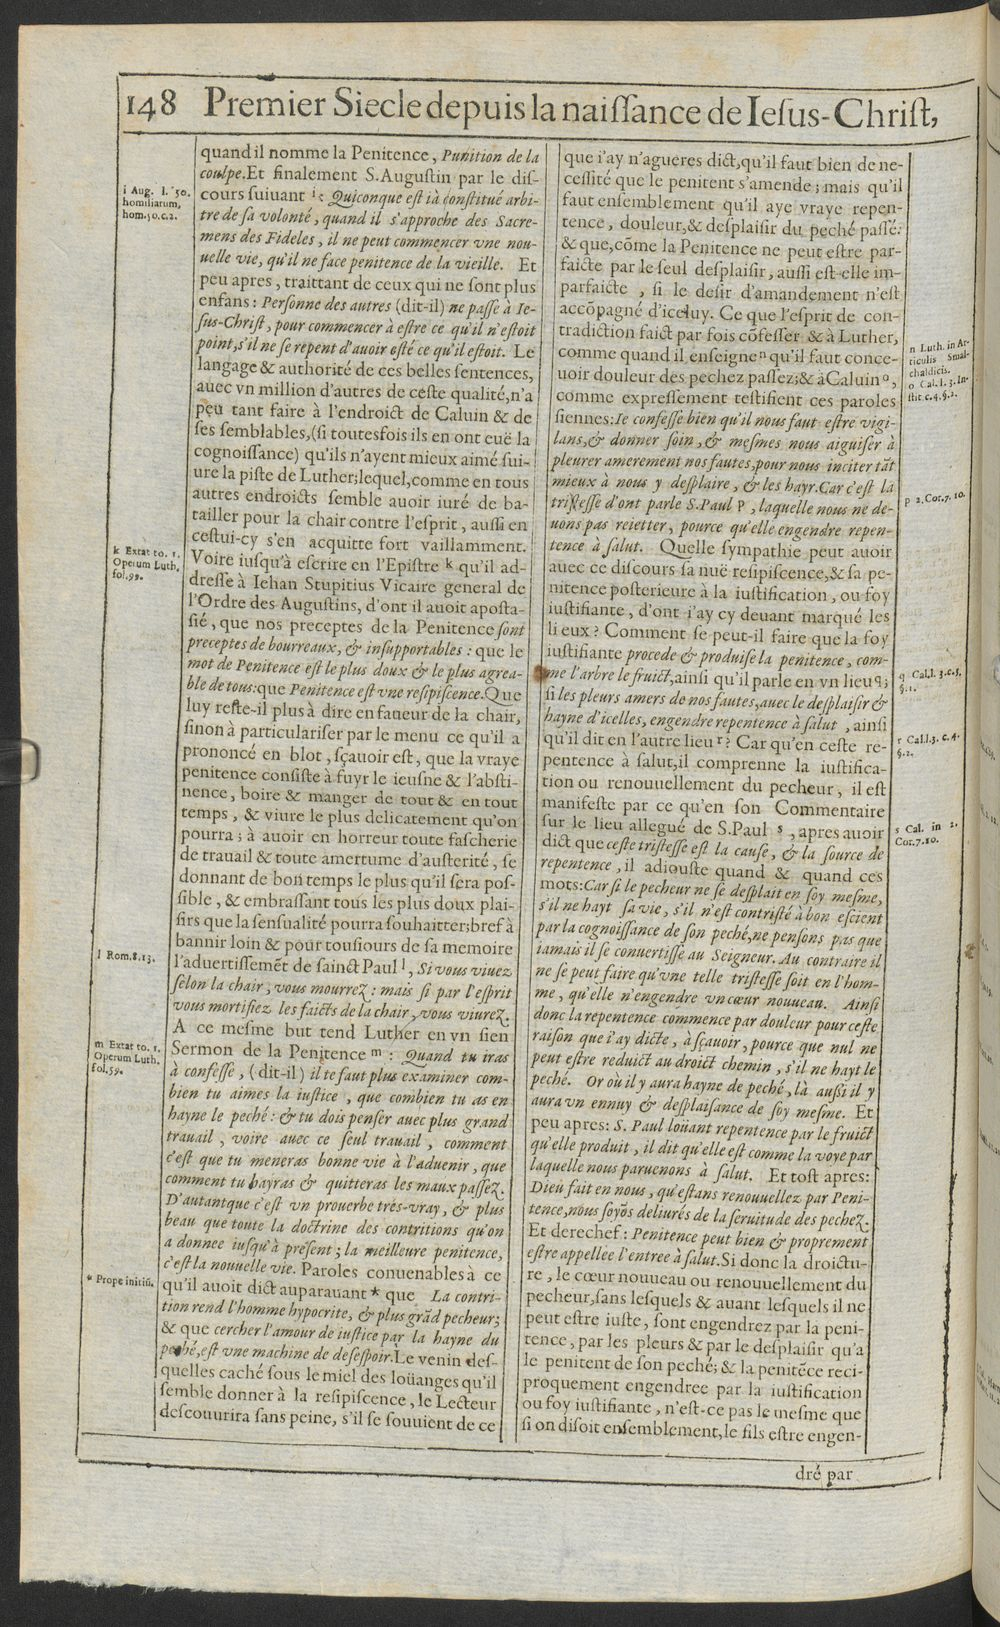 148 Premier Siecle depuis la naiſſance de Ieſus-Chriſt,
i Aug. l. 50.
homiliarum,
hom.50.c.2.
k Extat to. 1.
Operum Luth.
fol.99.
l Rom.8.13.
m Extat to. 1.
Operum Luth.
fol.59.
* Prope initiū.
quand il nomme la Penitence, Punition de la
coulpe. Et finalement S. Auguſtin par le diſ-
cours ſuivant i : Quiconque eſt ià conſtitué arbi-
tre de ſa volonté, quand il s'approche des Sacre-
mens des Fideles, il ne peut commencer vne nou-
uelle vie, qu'il ne face penitence de la vieille. Et
peu apres, traittant de ceux qui ne ſont plus
enfans : Perſonne des autres (dit-il) ne paſſe à Ie-
ſus-Chriſt, pour commencer à eſtre ce qu'il n'eſtoit
point, s'il ne ſe repent d'auoir eſté ce qu'il eſtoit. Le
langage & authorité de ces belles ſentences,
auec vn million d'autres de ceſte qualité, n'a
peu tant faire à l'endroict de Caluin & de
ſes ſemblables, (ſi toutesfois ils en ont euë la
cognoiſſance) qu'ils n'ayent mieux aimé ſui-
ure la piſte de Luther; lequel, comme en tous
autres endroicts ſemble auoir iuré de ba-
tailler pour la chair contre l'eſprit, auſſi en
ceſtui-cy s'en acquitte fort vaillamment.
Voire iuſqu'à eſcrire en l'Epiſtre k qu'il ad-
dreſſe à Iehan Stupitius Vicaire general de
l'Ordre des Auguſtins, d'ont il auoit apoſta-
ſié, que nos preceptes de la Penitence ſont
preceptes de bourreaux, & inſupportables : que le
mot de Penitence eſt le plus doux & le plus agrea-
ble de tous: que Penitence eſt vne reſipiſcence. Que
luy reſte-il plus à dire en faueur de la chair,
ſinon à particulariſer par le menu ce qu'il a
prononcé en blot, ſçauoir eſt, que la vraye
penitence conſiſte à fuyr le ieuſne & l'abſti-
nence, boire & manger de tout & en tout
temps, & viure le plus delicatement qu'on
pourra; à auoir en horreur toute faſcherie
de trauail & toute amertume d'auſterité, ſe
donnant de bon temps le plus qu'il ſera poſ-
ſible, & embraſſant tous les plus doux plai-
ſirs que la ſenſualité pourra ſouhaitter: bref à
bannir loin & pour touſiours de ſa memoire
l'aduertiſſemēt de ſainct Paul l, Si vous viuez
ſelon la chair, vous mourrez : mais ſi par l'eſprit
vous mortifiez les faicts de la chair, vous viurez.
A ce meſme but tend Luther en vn ſien
Sermon de la Penitence m : Quand tu iras
à confeſſe, (dit-il) il te faut plus examiner com-
bien tu aimes la iuſtice, que combien tu as en
hayne le peché : & tu dois penſer auec plus grand
trauail, voire auec ce ſeul trauail, comment
c'eſt que tu meneras bonne vie à l'aduenir, que
comment tu hayras & quitteras les maux paſſez.
D'autantque c'eſt vn prouerbe trés-vray, & plus
beau que toute la doctrine des contritions qu'on
a donnee iuſqu'à preſent; la meilleure penitence,
c'eſt la nouuelle vie. Paroles conuenables à ce
qu'il auoit dict auparauant * que La contri-
tion rend l'homme hypocrite, & plus grād pecheur;
& que cercher l'amour de iuſtice par la hayne du
peché, eſt vne machine de deſeſpoir. Le venin deſ-
quelles caché ſous le miel des loüanges qu'il
ſemble donner à la reſipiſcence, le Lecteur
deſcouurira ſans peine, s'il ſe ſouuient de ce
que i'ay n'agueres dict, qu'il faut bien de ne-
ceſſité que le penitent s'amende; mais qu'il
faut enſemblement qu'il aye vraye repen-
tence, douleur, & deſplaiſir du peché paſſé:
& que, cōme la Penitence ne peut eſtre par-
faicte par le ſeul deſplaiſir, auſſi eſt-elle im-
parfaicte, ſi le deſir d'amandement n'eſt
accōpagné d'iceluy. Ce que l'eſprit de con-
tradiction faict par fois cōfeſſer & à Luther,
comme quand il enſeigne n qu'il faut conce-
uoir douleur des pechez paſſez; & à Caluin o,
comme expreſſement teſtifient ces paroles
ſiennes: Ie confeſſe bien qu'il nous faut eſtre vigi-
lans, & donner ſoin, & meſmes nous aiguiſer à
pleurer amerement nos fautes, pour nous inciter tāt
mieux à nous y deſplaire, & les hayr. Car c'eſt la
triſteſſe d'ont parle S. Paul p, laquelle nous ne de-
uons pas reietter, pource qu'elle engendre repen-
tence à ſalut. Quelle ſympathie peut auoir
auec ce diſcours ſa nuë reſipiſcence, & ſa pe-
nitence poſterieure à la iuſtification, ou foy
iuſtifiante, d'ont i'ay cy deuant marqué les
lieux? Comment ſe peut-il faire que la foy
iuſtifiante procede & produiſe la penitence, com-
me l'arbre le fruict, ainſi qu'il parle en vn lieu q;
ſi les pleurs amers de nos fautes, auec le deſplaiſir &
hayne d'icelles, engendre repentence à ſalut, ainſi
qu'il dit en l'autre lieu r? Car qu'en ceſte re-
pentence à ſalut, il comprenne la iuſtifica-
tion ou renouuellement du pecheur, il eſt
manifeſte par ce qu'en ſon Commentaire
ſur le lieu allegué de S. Paul s, apres auoir
dict que ceſte triſteſſe eſt la cauſe, & la ſource de
repentence, il adiouſte quand & quand ces
mots: Car ſi le pecheur ne ſe deſplait en ſoy meſme,
s'il ne hayt ſa vie, s'il n'eſt contriſté à bon eſcient
par la cognoiſſance de ſon peché, ne penſons pas que
iamais il ſe conuertiſſe au Seigneur. Au contraire il
ne ſe peut faire qu'vne telle triſteſſe ſoit en l'hom-
me, qu'elle n'engendre vn cœur nouueau. Ainſi
donc la repentence commence par douleur pour ceſte
raiſon que i'ay dicte, à ſçauoir, pource que nul ne
peut eſtre reduict au droict chemin, s'il ne hayt le
peché. Or où il y aura hayne de peché, là auſſi il y
aura vn ennuy & deſplaiſance de ſoy meſme. Et
peu apres: S. Paul loüant repentence par le fruict
qu'elle produit, il dit qu'elle eſt comme la voye par
laquelle nous paruenons à ſalut. Et toſt apres:
Dieu fait en nous, qu'eſtans renouuellez par Peni-
tence, nous ſoyōs deliurés de la ſeruitude des pechez.
Et derechef : Penitence peut bien & proprement
eſtre appellee l'entree à ſalut. Si donc la droictu-
re, le cœur nouueau ou renouuellement du
pecheur, ſans leſquels & auant leſquels il ne
peut eſtre iuſte, ſont engendrez par la peni-
tence, par les pleurs & par le deſplaiſir qu'a
le penitent de ſon peché; & la penitēce reci-
proquement engendree par la iuſtification
ou foy iuſtifiante, n'eſt-ce pas le meſme que
ſi on diſoit enſemblement, le fils eſtre engen-
dré par
n Luth. in Ar-
ticulis Smal-
chaldicis.
o Cal. l. 3. In-
ſtit c.4.§.2.
p 2.Cor.7. 10.
q Cal.l. 3.c.3.
§.1.
r Cal.l.3. c.4.
§.2.
s Cal. in 2.
Cor.7.10.